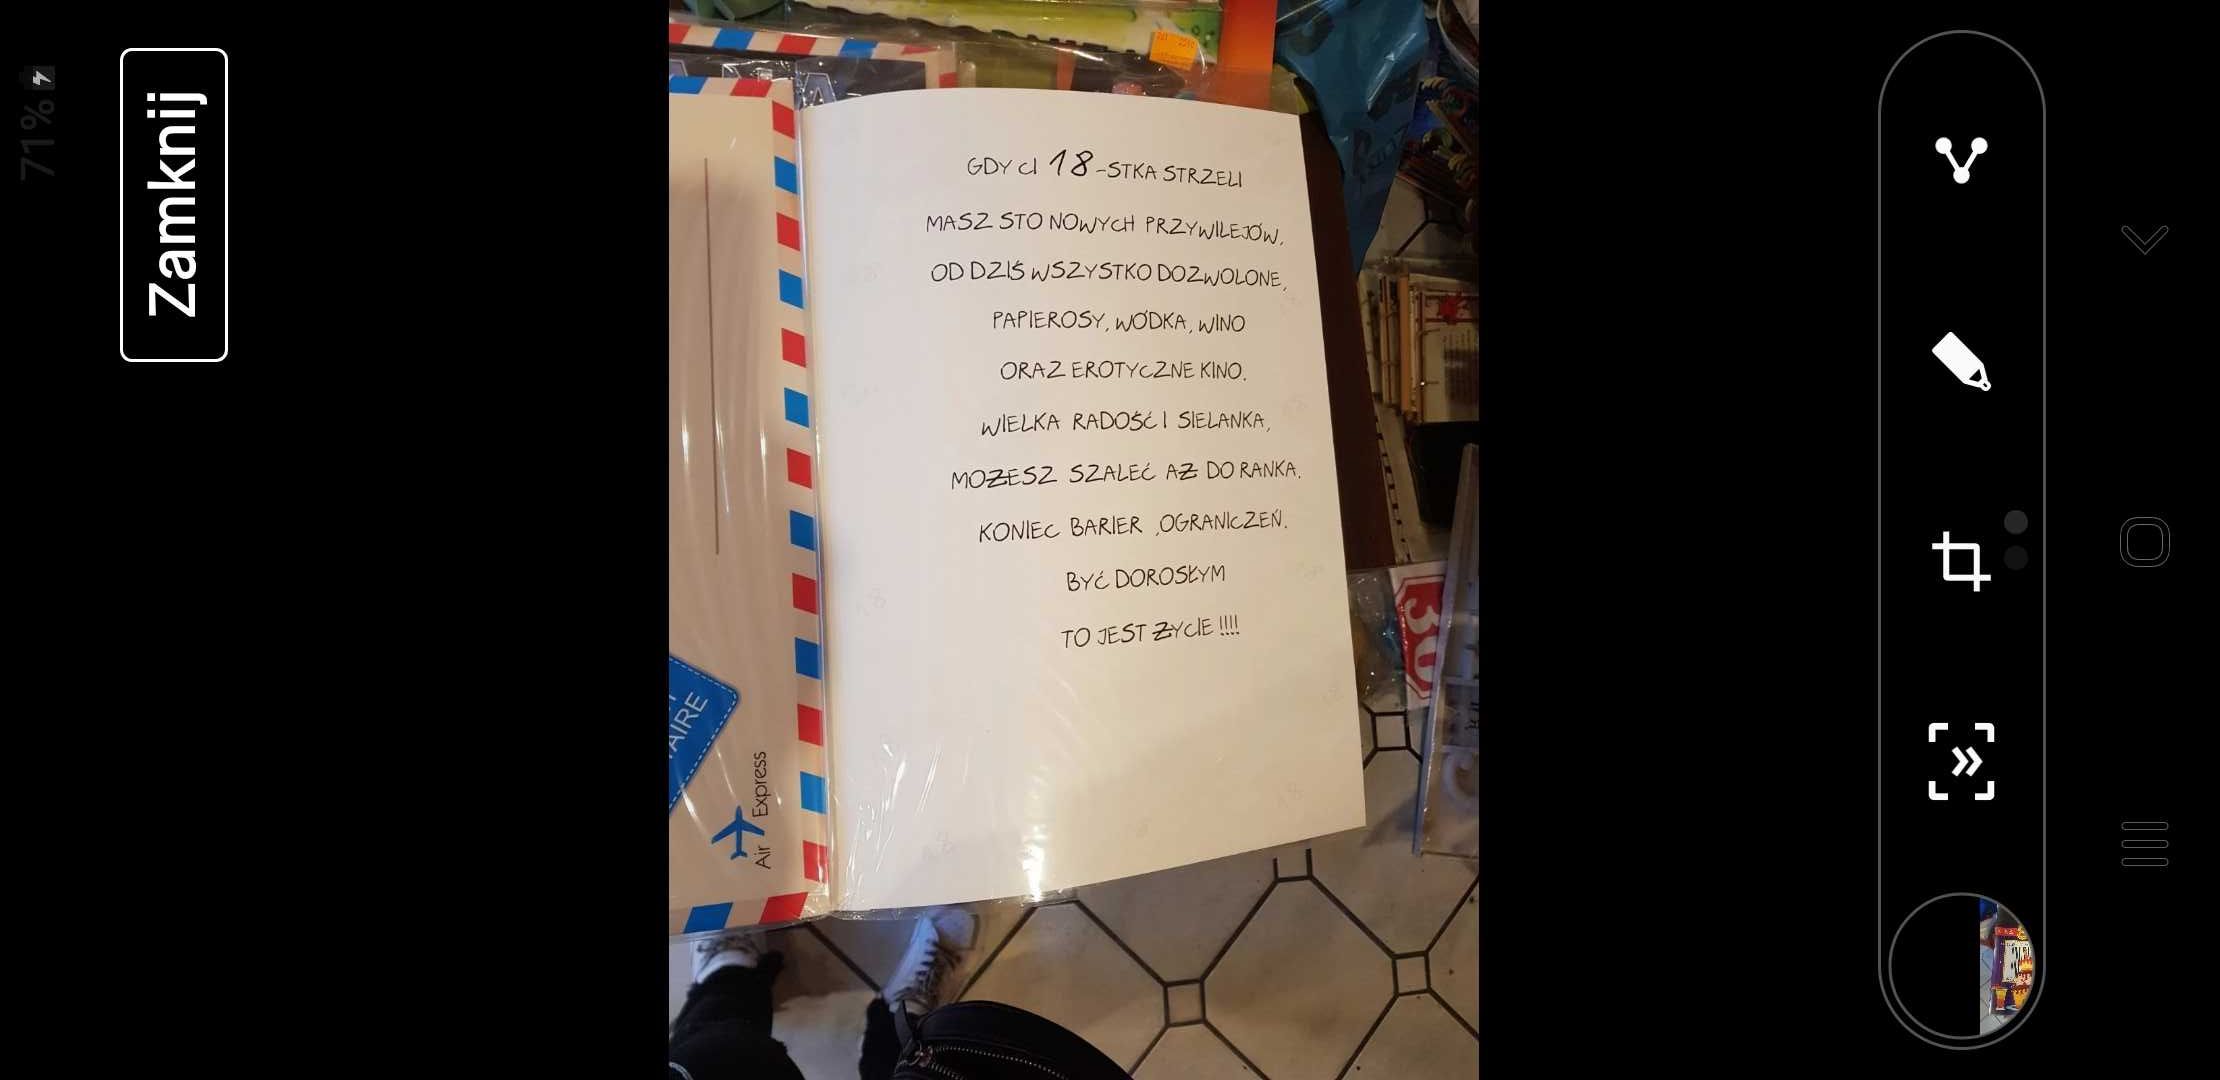 71%
Zamknij
GDY CI 18-STKA STRZELI
MASZ STO NOWYCH PRZYWILEJÓW.
OD DZIŚ WSZYSTKO DOZWOLONE,
PAPIEROSY, WÓDKA, WINO
ORAZ EROTYCZNE KINO.
WIELKA RADOŚĆ I SIELANKA,
MOŻESZ SZALEĆ AŻ DO RANKA.
KONIEC BARIER ,OGRANICZEŃ.
BYĆ DOROSŁYM
TO JEST ŻYCIE !!!!
AIRE
Air Express
30